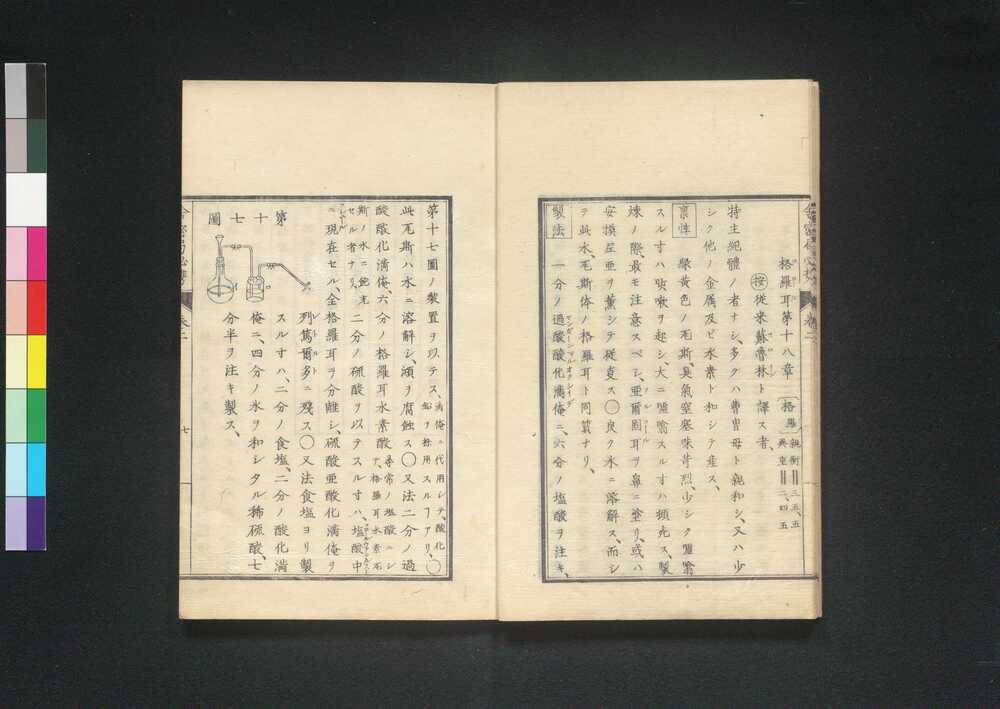 格羅耳第十八章 格羅 親衡‖三五、五 異重‖二、四五
按從来蘇魯林ト譯ス者、
特生純體ノ者ナシ、多クハ曹冑母ト親和シ、又ハ少
シク他ノ金属及ビ水素ト和シテ産ス、
禀性 緑黄色ノ瓦斯、臭氣窒塞味苛烈、少シク嚊
スル寸ハ咳嗽ヲ起シ、大ニ嚊スル寸ハ頓死ス、製
煉ノ際、最モ注意スベシ、亜爾箇耳ヲ鼻ニ塗リ、或ハ
安摸尼亜ヲ薫シテ従亊ス○良ク水ニ溶解ス、而シ
テ此水、瓦斯体ノ格羅耳ト同質ナリ、
製法 一分ノ過酸酸化満俺ニ、六分ノ塩酸ヲ注キ、
第十七圖ノ裝置ヲ以テス、満俺ニ代用シテ、酸化鉛ヲ株用スルフアリ、○
此瓦斯ハ水ニ溶解シ、澒ヲ腐蝕ス○又法二分ノ過
酸酸化満俺、六分ノ格羅耳水素酸尋常ノ塩酸ニシテ、格羅耳水素瓦
斯ノ水ニ飽充セル者ナリ、二分ノ硫酸ヲ以テスル寸ハ、塩酸中
ニ現在セル、全格羅耳ヲ分離シ、硫酸亜酸化満俺ヲ
列篤爾多ニ残ス○又法食塩ヨリ製
スル寸ハ、二分ノ食塩、二分ノ酸化満
俺ニ、四分ノ水ヲ和シタル稀硫酸、七
分半ヲ注キ製ス、
第十七圖
七